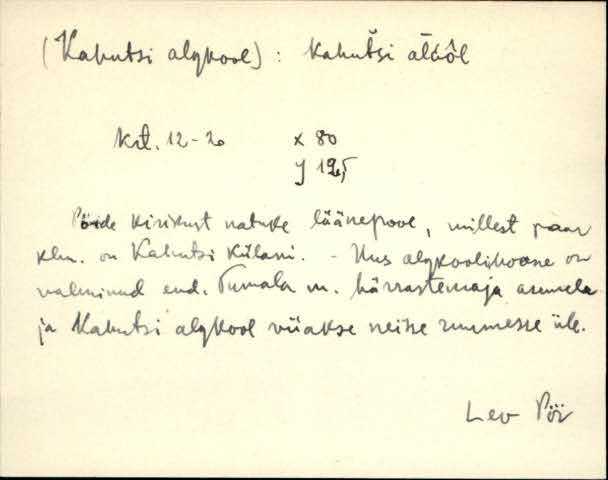 (Kahutsi algkool) : kahutsi
krt. 12-20 x 80
y 195
Pöide kirikust natuke läänepool, millest paar
klm. on Kahutsi külani. - Uus algkoolihoone on
valminud end. Tumala m. härrastemaja asemele
ja Kahutsi algkool viiakse neisse ruumesse üle.
Lev Pöi